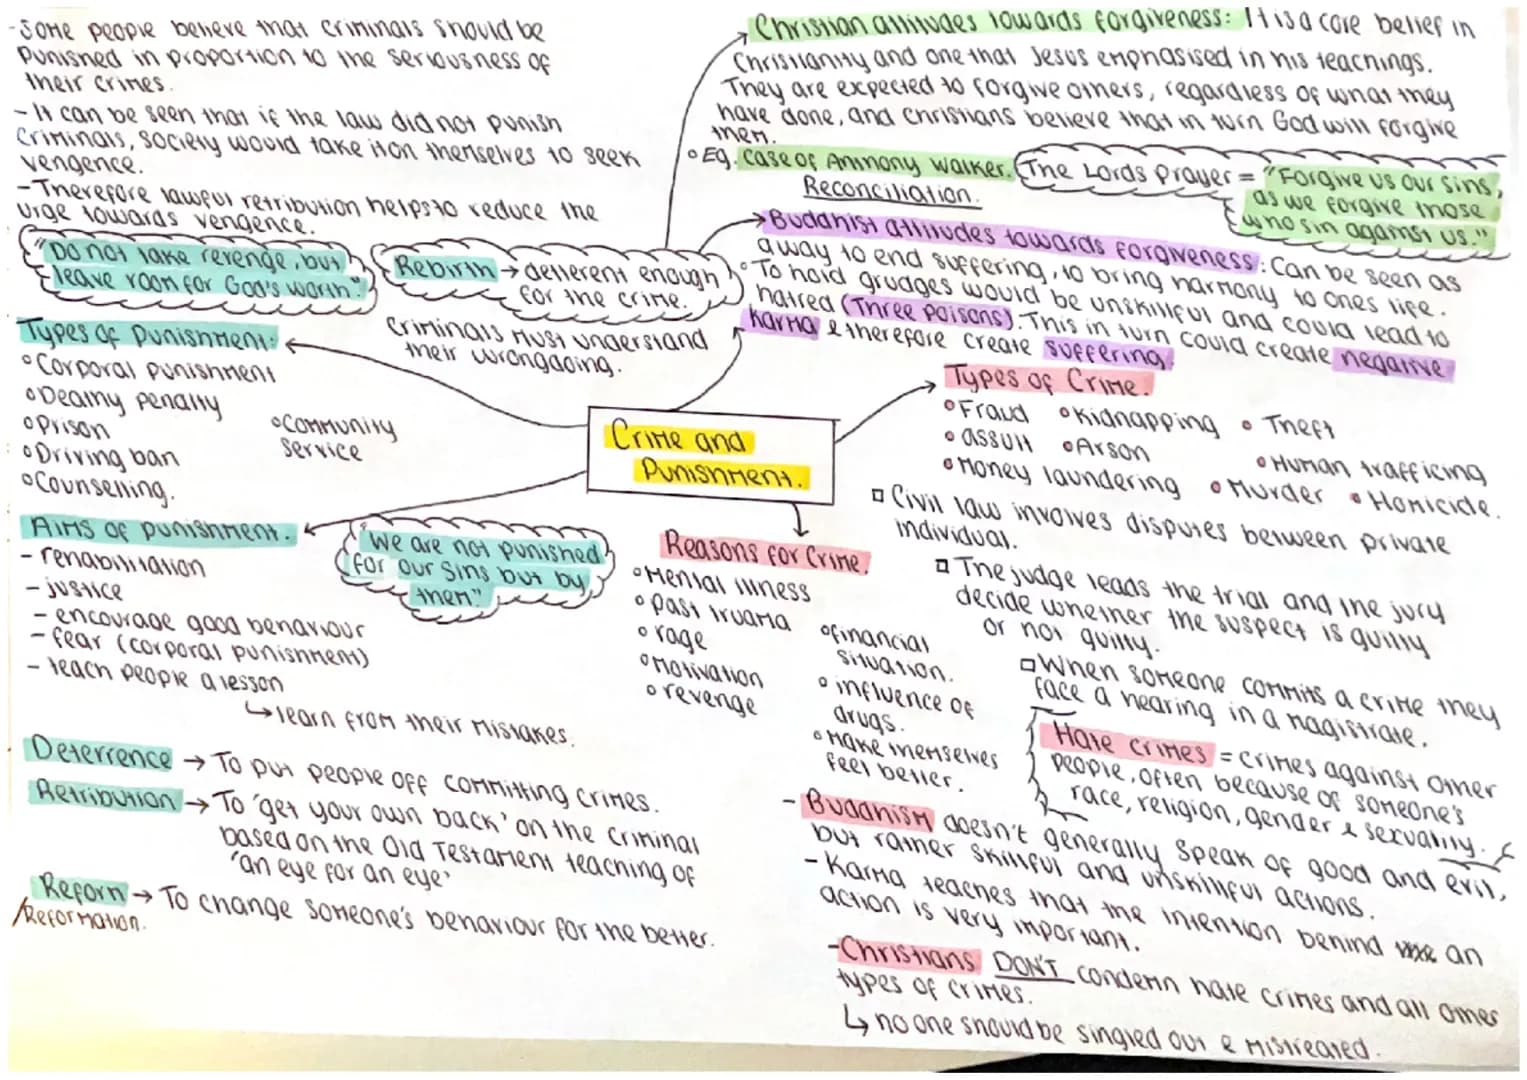 -Some people believe that criminals should be
punished in proportion to the seriousness of
their crimes.
- It can be seen that if the law did not punish
criminals, society would take it on themselves to seek
vengence.
-Therefore lawful retribution helps to reduce the
urge towards vengence.
"Do not take revenge, but
leave room for God's worth."
Rebirth → deterrent enough
for the crime.
Criminals must understand
their wrongdoing.
Types of Punishment:
°Corporal punishment
°Deathy penalty
°Prison
°Driving ban
°Counselling.
°Community
service
Aims of punishment.
- rehabilitation
- justice
- encourage good behaviour
- fear (corporal punishment)
- teach people a lesson
↳ learn from their mistakes.
"We are not punished
for our sins but by
them"
Deterrence → To put people off committing crimes.
Retribution → To 'get your own back' on the criminal
based on the Old Testament teaching of
'an eye for an eye'
Reform → To change someone's behaviour for the better.
/Reformation.
Crime and
Punishment.
Christian attitudes towards forgiveness: It is a core belief in
Christianity and one that Jesus emphasised in his teachings.
They are expected to forgive others, regardless of what they
have done, and Christians believe that in turn God will forgive
them.
°Eg. Case of Anthony Walker.
Reconciliation.
The Lords Prayer = "Forgive us our sins,
as we forgive those
who sin against us."
Buddhist attitudes towards forgiveness: Can be seen as
a way to end suffering, to bring harmony to ones life.
°To hold grudges would be unskillful and could lead to
hatred (Three Poisons). This in turn could create negative
karma & therefore create suffering.
Types of Crime.
°Fraud °Kidnapping ° Theft
° assult °Arson °Human trafficing
°Money laundering °Murder °Homicide.
□ Civil law involves disputes between private
individual.
□ The judge leads the trial and the jury
decide whether the suspect is guilty
or not guilty.
□When someone commits a crime they
face a hearing in a magistrate.
Hate crimes = crimes against other
people, often because of someone's
race, religion, gender & sexuality.
Reasons for Crime.
°Mental illness
°past truama
°rage
°Motivation
°revenge
°financial
situation.
°influence of
drugs.
°Make themselves
feel better.
- Buddhism doesn't generally speak of good and evil,
but rather skillful and unskillful actions.
-Karma teaches that the intention behind an
action is very important.
-Christians DON'T condemn hate crimes and all other
types of crimes.
↳ no one should be singled out & mistreated.